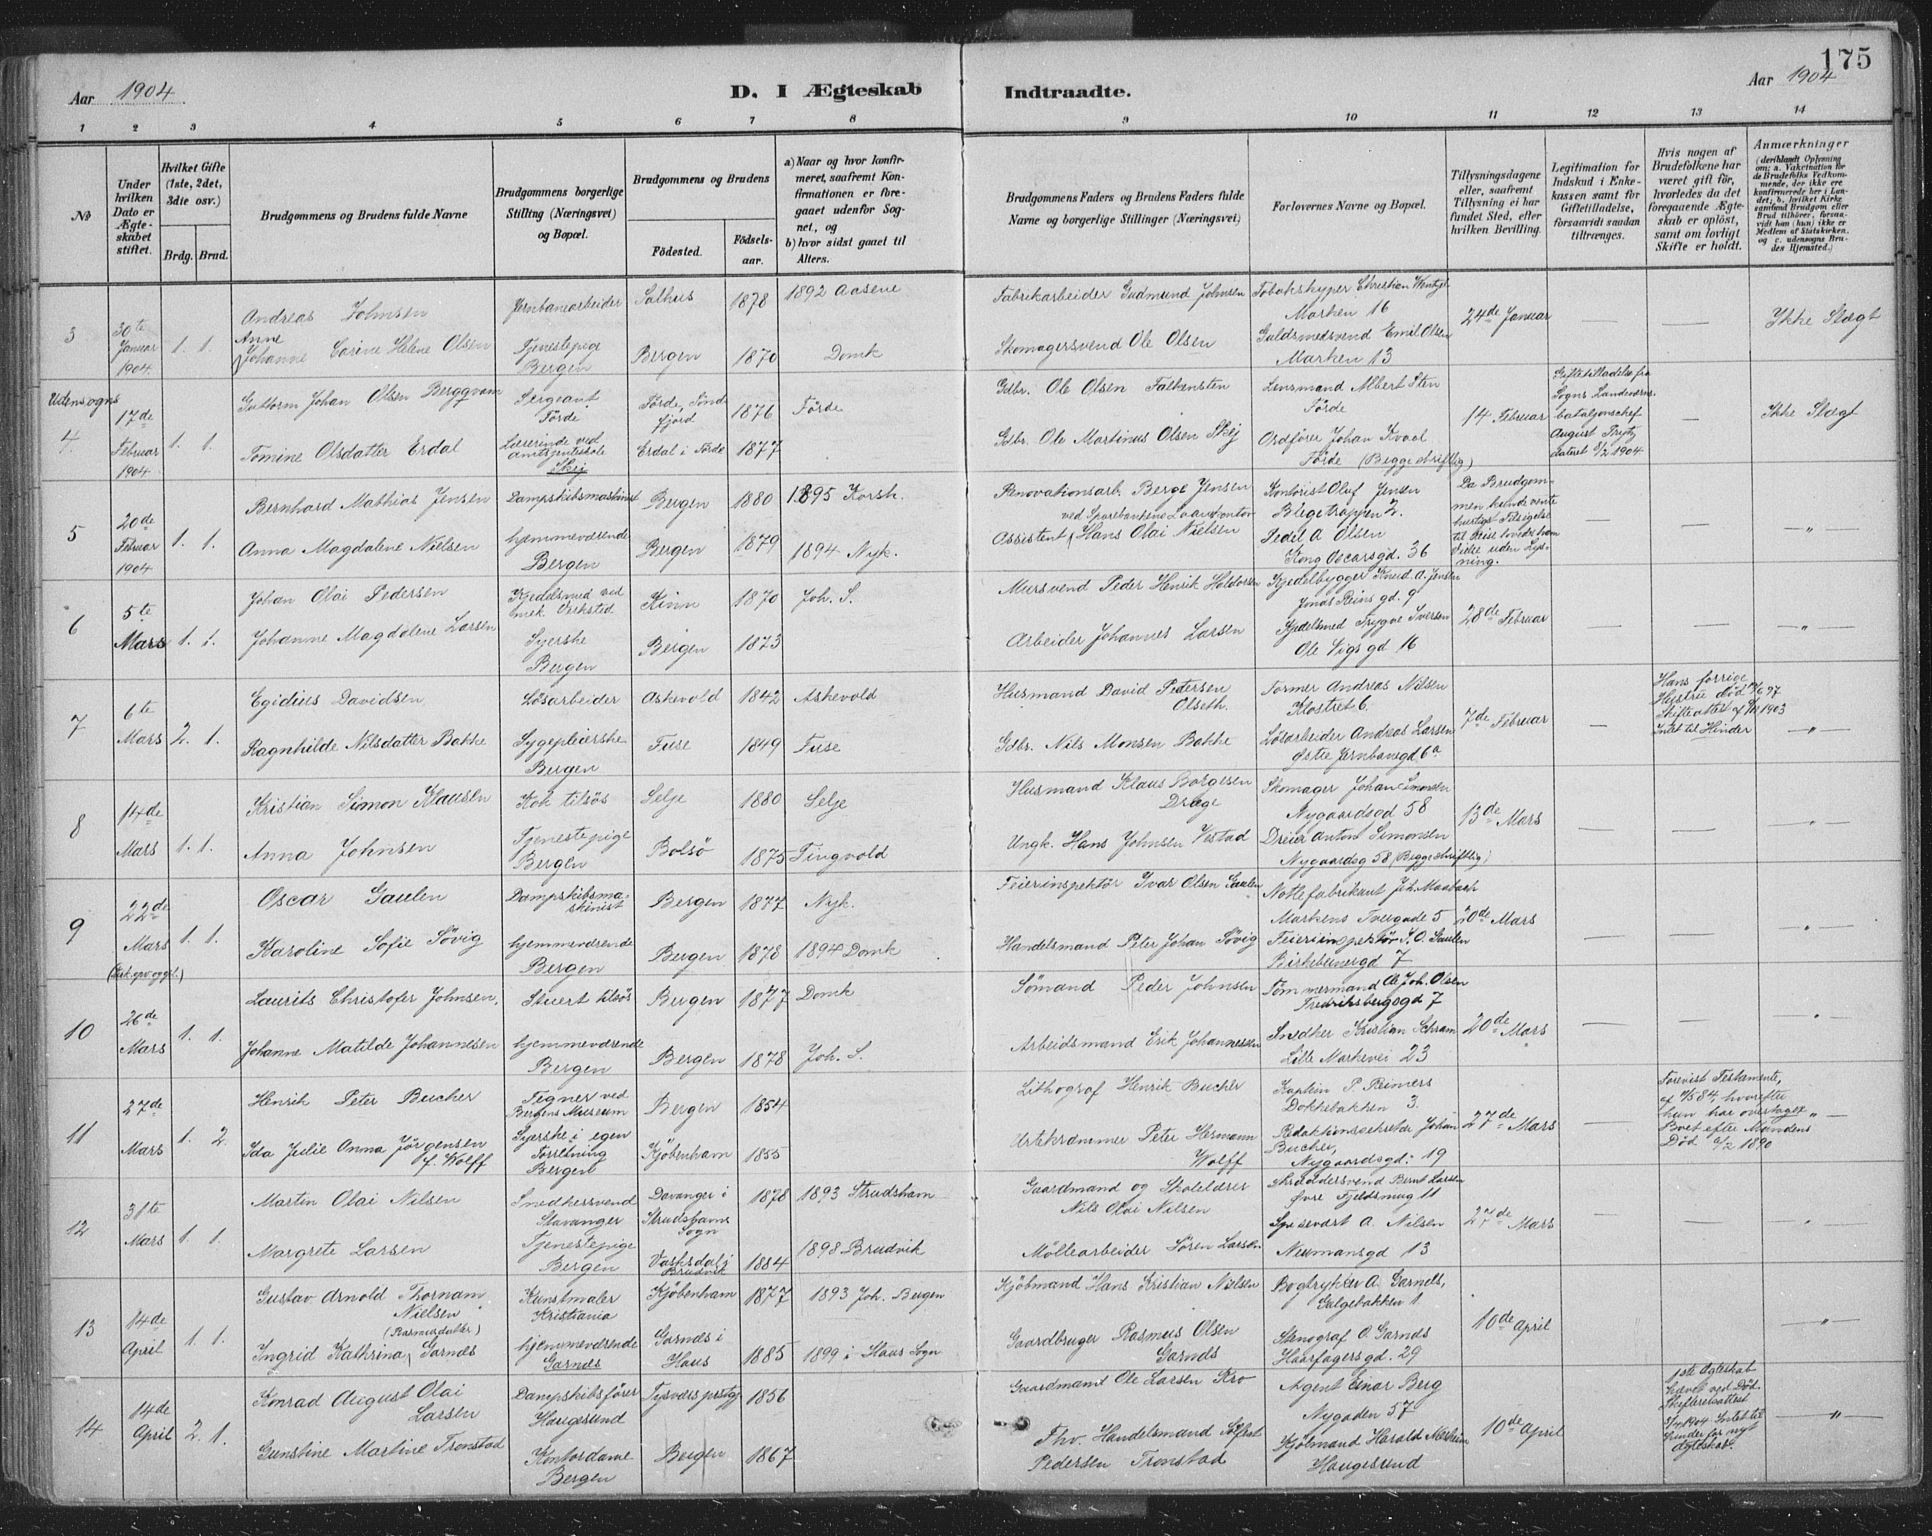 175
Aar 1904
D. I Ægteskab
Indtraadte.
Aar 1904
1 2 3 4 5 6 7 8 9 10 11 12 13 14
No
Under hvilken Dato er Ægteskabet stiftet.
Hvilket Gifte (1ste, 2det, 3die osv.)
Brdg. Brud.
Brudgommens og Brudens fulde Navne
Brudgommens borgerlige Stilling (Næringsvei) og Bopæl.
Brudgommens og Brudens
Födested.
Födselsaar.
a) Naar og hvor konfirmeret, saafremt Konfirmationen er foregaaet udenfor Sognet, og
b) hvor sidst gaaet til Alters.
Brudgommens Faders og Brudens Faders fulde Navne og borgerlige Stillinger (Næringsvei)
Forlovernes Navne og Bopæl.
Tillysningsdagene eller, saafremt Tillysning ei har fundet Sted, efter hvilken Bevilling.
Legitimation for Indskud i Enkekassen samt for Giftetilladelse, forsaavidt saadan tiltrænges.
Hvis nogen af Brudefolkene har været gift för, hvorledes da det foregaaende Ægteskab er oplöst, samt om lovligt Skifte er holdt.
Anmærkninger
3 30te Januar 1904 1. 1.
Andreas Johnsen Jernbanearbeider Salhus 1878 1892 Aasene Fabrikarbeider Gudmund Johnsen Tobakshyper Christian Wentzel Marken 16 24de Januar — — Ikke Slægt
Anne Johanne Carine Helene Olsen Tjenestepige Bergen Bergen 1870 Domk Skomagersvend Ole Olsen Guldsmedsvend Emil Olsen Marken 13
Udensogns
4 17de Februar 1904 1. 1.
Guttorm Johan Olsen Berggvam Sergeant Förde Förde, Söndfjord 1876 Förde Gdbr. Ole Olsen Falkensten Lensmand Albert Sten Förde 14 Februar Giftetilladelse fra Sogns Landeværnsbataljonschef August dateret 8/2 1904 — Ikke Slægt
Tomine Olsdatter Erdal Lærerinde ved Amtsjenteskole Skej Erdal i Förde 1877 Gdbr. Ole Martinus Olsen Skej Ordförer Johan Kvaal Förde (Begge skriftlig)
5 20de Februar 1904 1. 1.
Bernhard Mathias Jensen Dampskibsmaskinist Bergen 1880 1895 Korsk. Renovationsarb. Berge Jensen Kontorist Oluf Jensen Blegetrappen 2. Da Brudgommen kunde vente hurtigt Tilsigelse til Reise viedes ham Dicte uden Lysning. — — "
Anna Magdalene Nielsen hjemmeværende Bergen Bergen 1879 1894 Nyk. Assistent ved Sparebankens Laanekontor Hans Olai Nielsen Pedel A Olsen Kong Oscarsgd. 36
6 5te Mars 1. 1.
Johan Olai Pedersen Kjedelsmed ved mek. Verksted Kinn 1870 Joh. S. Mursvend Peder Henrik Haldorsen Kjedelbygger Knud A. Jensen Jonas Reins gd. 9 28de Februar — — "
Johanne Magdalene Larsen Syerske Bergen Bergen 1873 Arbeider Johannes Larsen Kjedelsmed Trygve Iversen Ole Vigs gd 16
7 6te Mars 2. 1.
Egidius Davidsen Lösarbeider Askevold 1842 Askevold Husmand David Petersen Olseth. Former Andreas Nilsen Klostret 6. 7de Februar — Hans forrige Hustru död 97 Skifteattest af 1903 Intet til Hinder — " —
Ragnhilde Nilsdatter Bakke Sygepleierske Bergen Fuse 1849 Fuse Gdbr. Nils Monsen Bakke Lösarbeider Andreas Larsen Østre Jernbanegd 6a
8 14de Mars 1. 1.
Kristian Simon Klausen Kok tilsös Selje 1880 Selje Husmand Klaus Borgesen Drage Skomager Johan Simonsen Nygaardsgd 58 13de Mars — — "
Anna Johnsen Tjenestepige Bergen Bolsö 1875 Tingvold Ungk. Hans Johnsen Vestad Dreier Anton Simonsen Nygaardsg 58 (Begge skriftlig)
9 22de Mars 1. 1.
Oscar Gaulen Dampskibsmaskinist Bergen 1877 Nyk. Feierinspektör Ivar Olsen Gaulen Nottefabrikant Joh. Markens Tvergade 5 20de Mars — — "
Karoline Sofie Sövig hjemmeværende Bergen Bergen 1878 1894 Domk Handelsmand Peter Johan Sövig Feierinspektör I. O. Gaulen Birkebeinergd 7
10 26de Mars 1. 1.
Laurits Christofer Johnsen. Stuert tilsös Bergen 1877 Domk Sömand Peder Johnsen Tömmermand Ole Joh. Olsen Fredriksbergsgd 7 20de Mars — — "
Johanne Matilde Johannesen hjemmeværende Bergen Bergen 1878 Joh. S. Arbeidsmand Erik Johannessen Snedker Kristian Schram Lille Markevei 23
11 27de Mars 1. 2.
Henrik Peter Bucher Tegner ved Bergens Museum Bergen 1854 Lithograf Henrik Bucher Kaptein P. Reimers Dokkebakken 3. 27de Mars — Forevist Testamente, af 84 hvorefter hun har overtaget Boet efter Mandens Död 1890 — " —
Ida Julie Anna Jörgensen f. Wolff Syerske i egen Forretning Bergen Kjöbenhavn 1855 Urtekræmmer Peter Hermann Wolff Redaktionssekretær Johan Bucher, Nygaardsgd: 19
12 31te Mars 1 1.
Martin Olai Nilsen Snedkersvend Stavanger Davanger i Strudshavns Sogn 1878 1893 Strudshavn Gaardmand og Skolelærer Nils Olai Nilsen Skræddersvend Bernt Larsen Övre Fjeldsmug 11 27de Mars — — "
Margrete Larsen Tjenestepige Bergen Vaksdal i Brudvik 1884 1898 Brudvik Möllearbeider Sören Larsen Spisevært A. Nilsen Neumansgd 13
13 14de April 1. 1.
Gustav Arnold Thornam Nielsen Kunstmaler Kristiania Kjöbenhavn 1877 1893 Joh. Bergen Kjöbmand Hans Kristian Nielsen Bogtrykker A. Garnæs, Galgebakken 1 10de April — " —
Ingrid Kathrina (Rasmusdatter) Garnæs hjemmeværende Garnæs Garnæs i Haus 1885 1899 i Haus Sogn Gaardbruger Rasmus Olsen Garnæs Stenograf O. Garnæs Haarfagersgd. 29
14 14de April 2. 1.
Konrad August Olai Larsen Dampskibsförer Haugesund Tysvær prstgj 1856 Gaardmand Ole Larsen Kro Agent Einar Berg Nygaden 57 10de April 1ste Egteskab hævet ved Död. Skifteretsattest 1904 Intet til Hinder for nyt Egteskab. — " —
Gunstine Martine Tronstad Kontordame Bergen Bergen 1867 Fhv. Handelsmand Pedersen Tronstad Kjöbmand Harald Haugesund